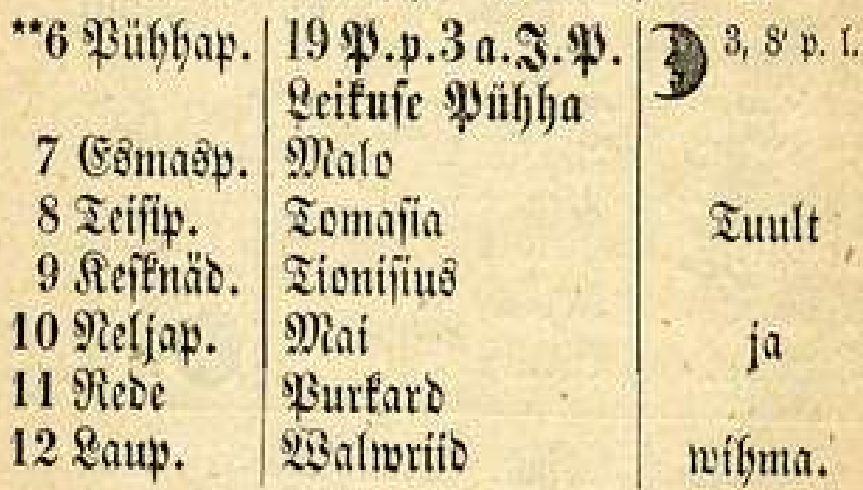 **6 Pühhap. 19 P.p.3a.J.P. 3, 8' p. l.
Leikuse Pühha
7 Esmasp. Malo
8 Teisip. Tomasia Tuult
9 Kesknäd. Tionisius
10 Neljap. Mai ja
11 Rede Purkard
12 Laup. Walwriid wihma.